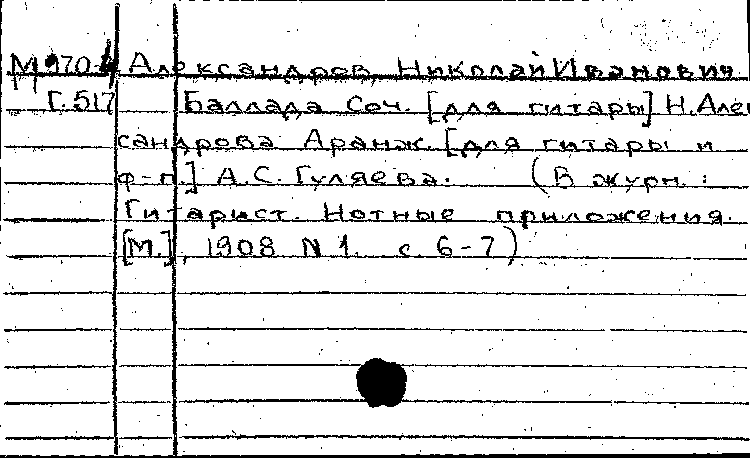 М 970-4 Александров Николай Иванович
11
Г.517 Баллада Соч. [для гитары] Н. Алек
сандрова Аранж. [для гитары и
ф-п.] А.С. Гуляева. (В журн. :
Гитарист. Нотные приложения.
[М.], 1908 N 1. с. 6-7)